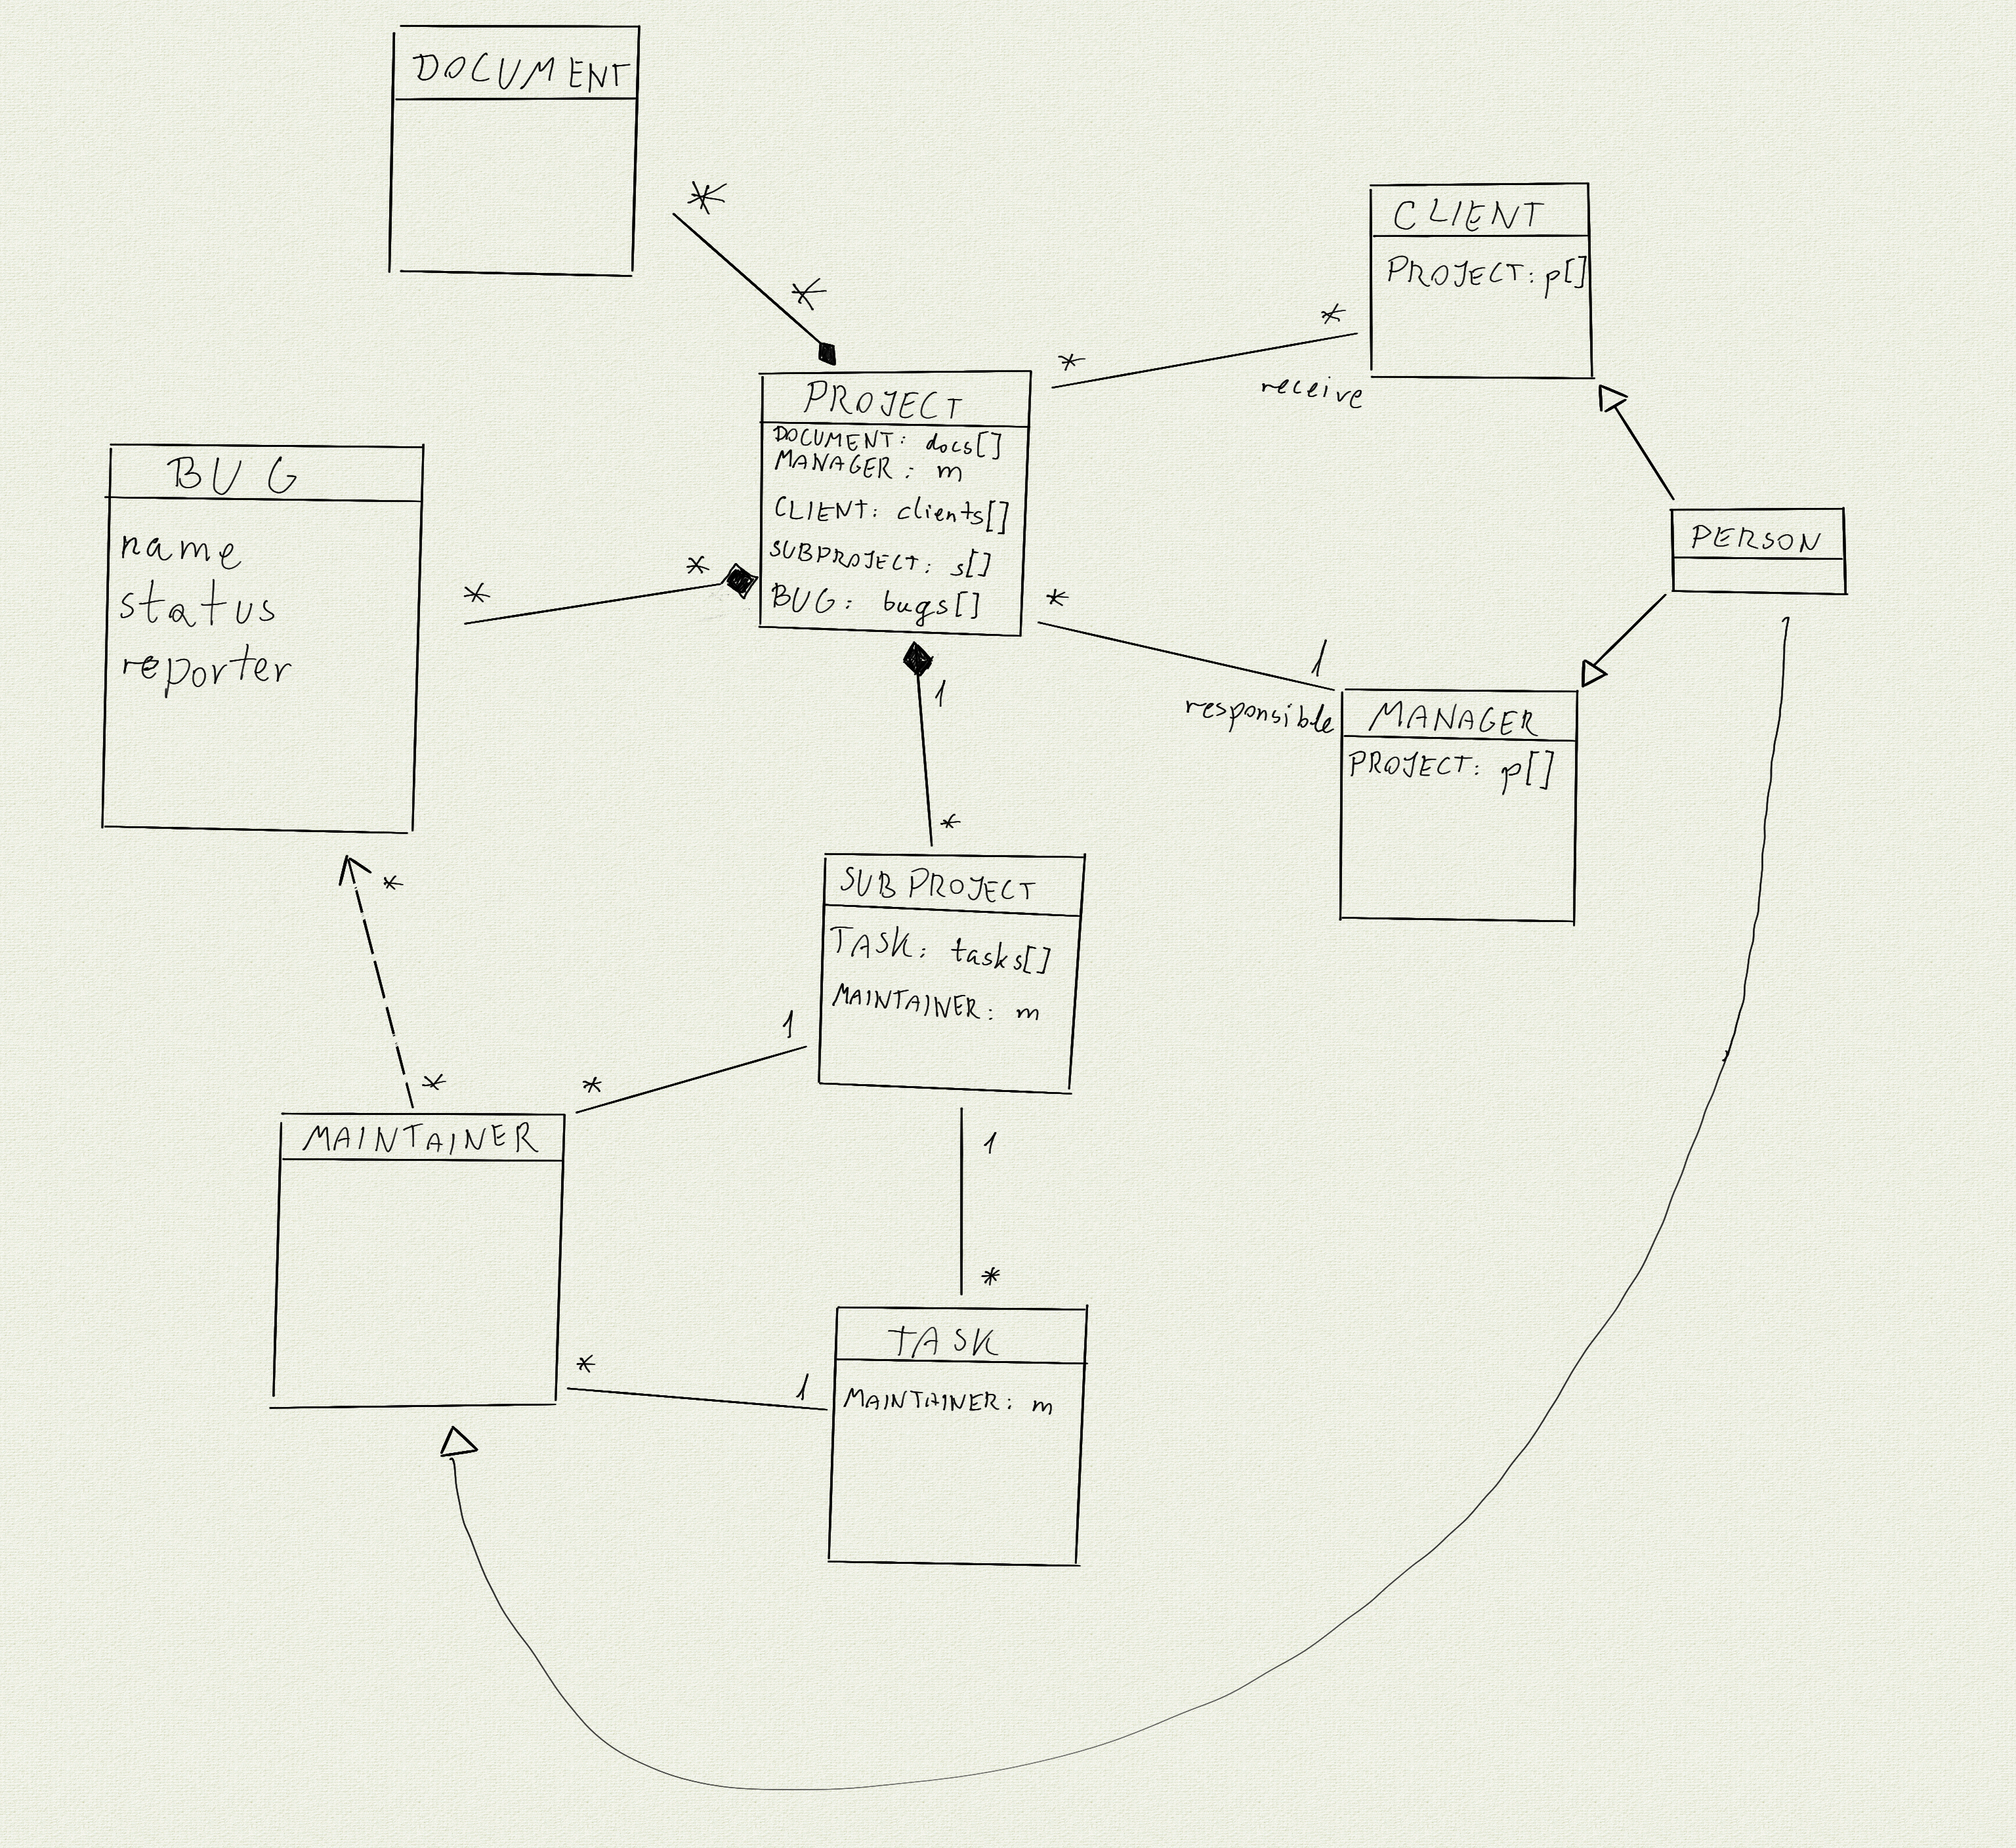 DOCUMENT
*
*
CLIENT
PROJECT: p[]
*
*
receive
PROJECT
DOCUMENT: docs[]
MANAGER: m
CLIENT: clients[]
SUBPROJECT: s[]
BUG: bugs[]
BUG
name
status
reporter
*
*
PERSON
*
1
responsible
MANAGER
PROJECT: p[]
1
*
SUBPROJECT
TASK: tasks[]
MAINTAINER: m
*
*
1
*
MAINTAINER
1
*
TASK
MAINTAINER: m
*
1